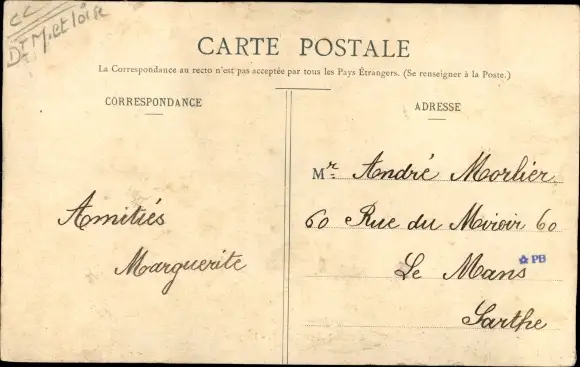 CC
Dt M. et Loire
CARTE POSTALE
La Correspondance au recto n'est pas acceptée par tous les Pays Étrangers. (Se renseigner à la Poste.)
CORRESPONDANCE
Amitiés
Marguerite
ADRESSE
Mr André Morlier
60 Rue du Miroir 60
Le Mans
PB
Sarthe